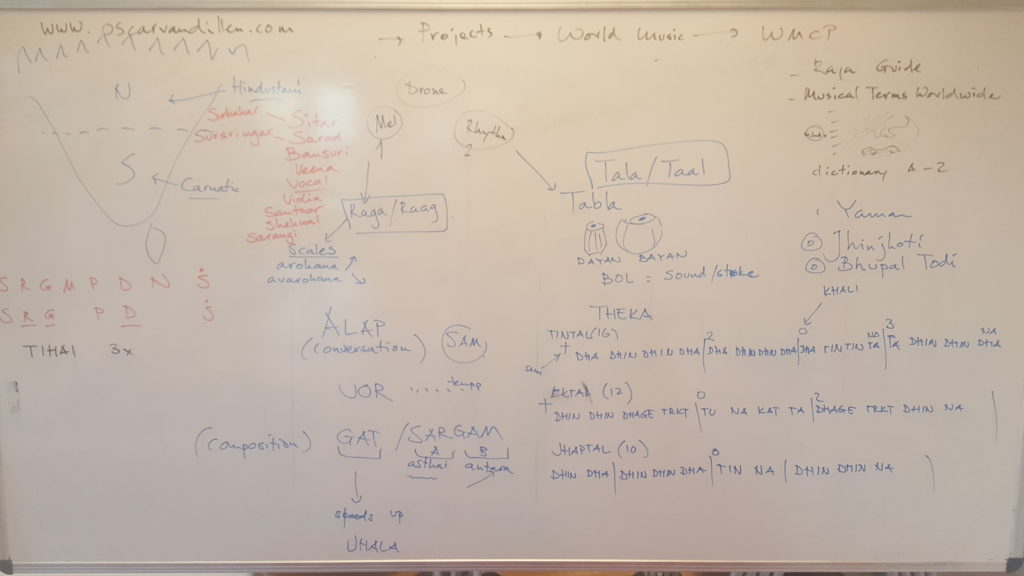 www.oscarvandillen.com → Projects → World Music → WMCP
- Raga Guide
- Musical Terms Worldwide
dictionary A-Z
N
Hindustani
S
Carnatic
Surbahar
Sursringar
Sitar
Sarod
Bansuri
Veena
Vocal
Violin
Santoor
Shehnai
Sarangi
Drone
Mel
1
Rhythm
2
Raga/Raag
Scales
arohana
avarohana
Tala/Taal
Tabla
DAYAN BAYAN
BOL = sound/stroke
Yaman
Jhinjhoti
Bhupal Todi
KHALI
S R G M P D N Ṡ
S R G P D Ṡ
TIHAI 3x
ALAP
(conversation)
SAM
JOR ...... tempo
(composition) GAT / SARGAM
A B
asthai antara
speeds up
JHALA
THEKA
TINTAL (16)
sam
+ 2 0 3
DHA DHIN DHIN DHA | DHA DHIN DHIN DHA | DHA TIN TIN TA | TA DHIN DHIN DHA
NA NA
EKTAL (12)
+ 0 2
DHIN DHIN DHAGE TRKT | TU NA KAT TA | DHAGE TRKT DHIN NA
JHAPTAL (10)
0
DHIN DHA | DHIN DHIN DHA | TIN NA | DHIN DHIN NA